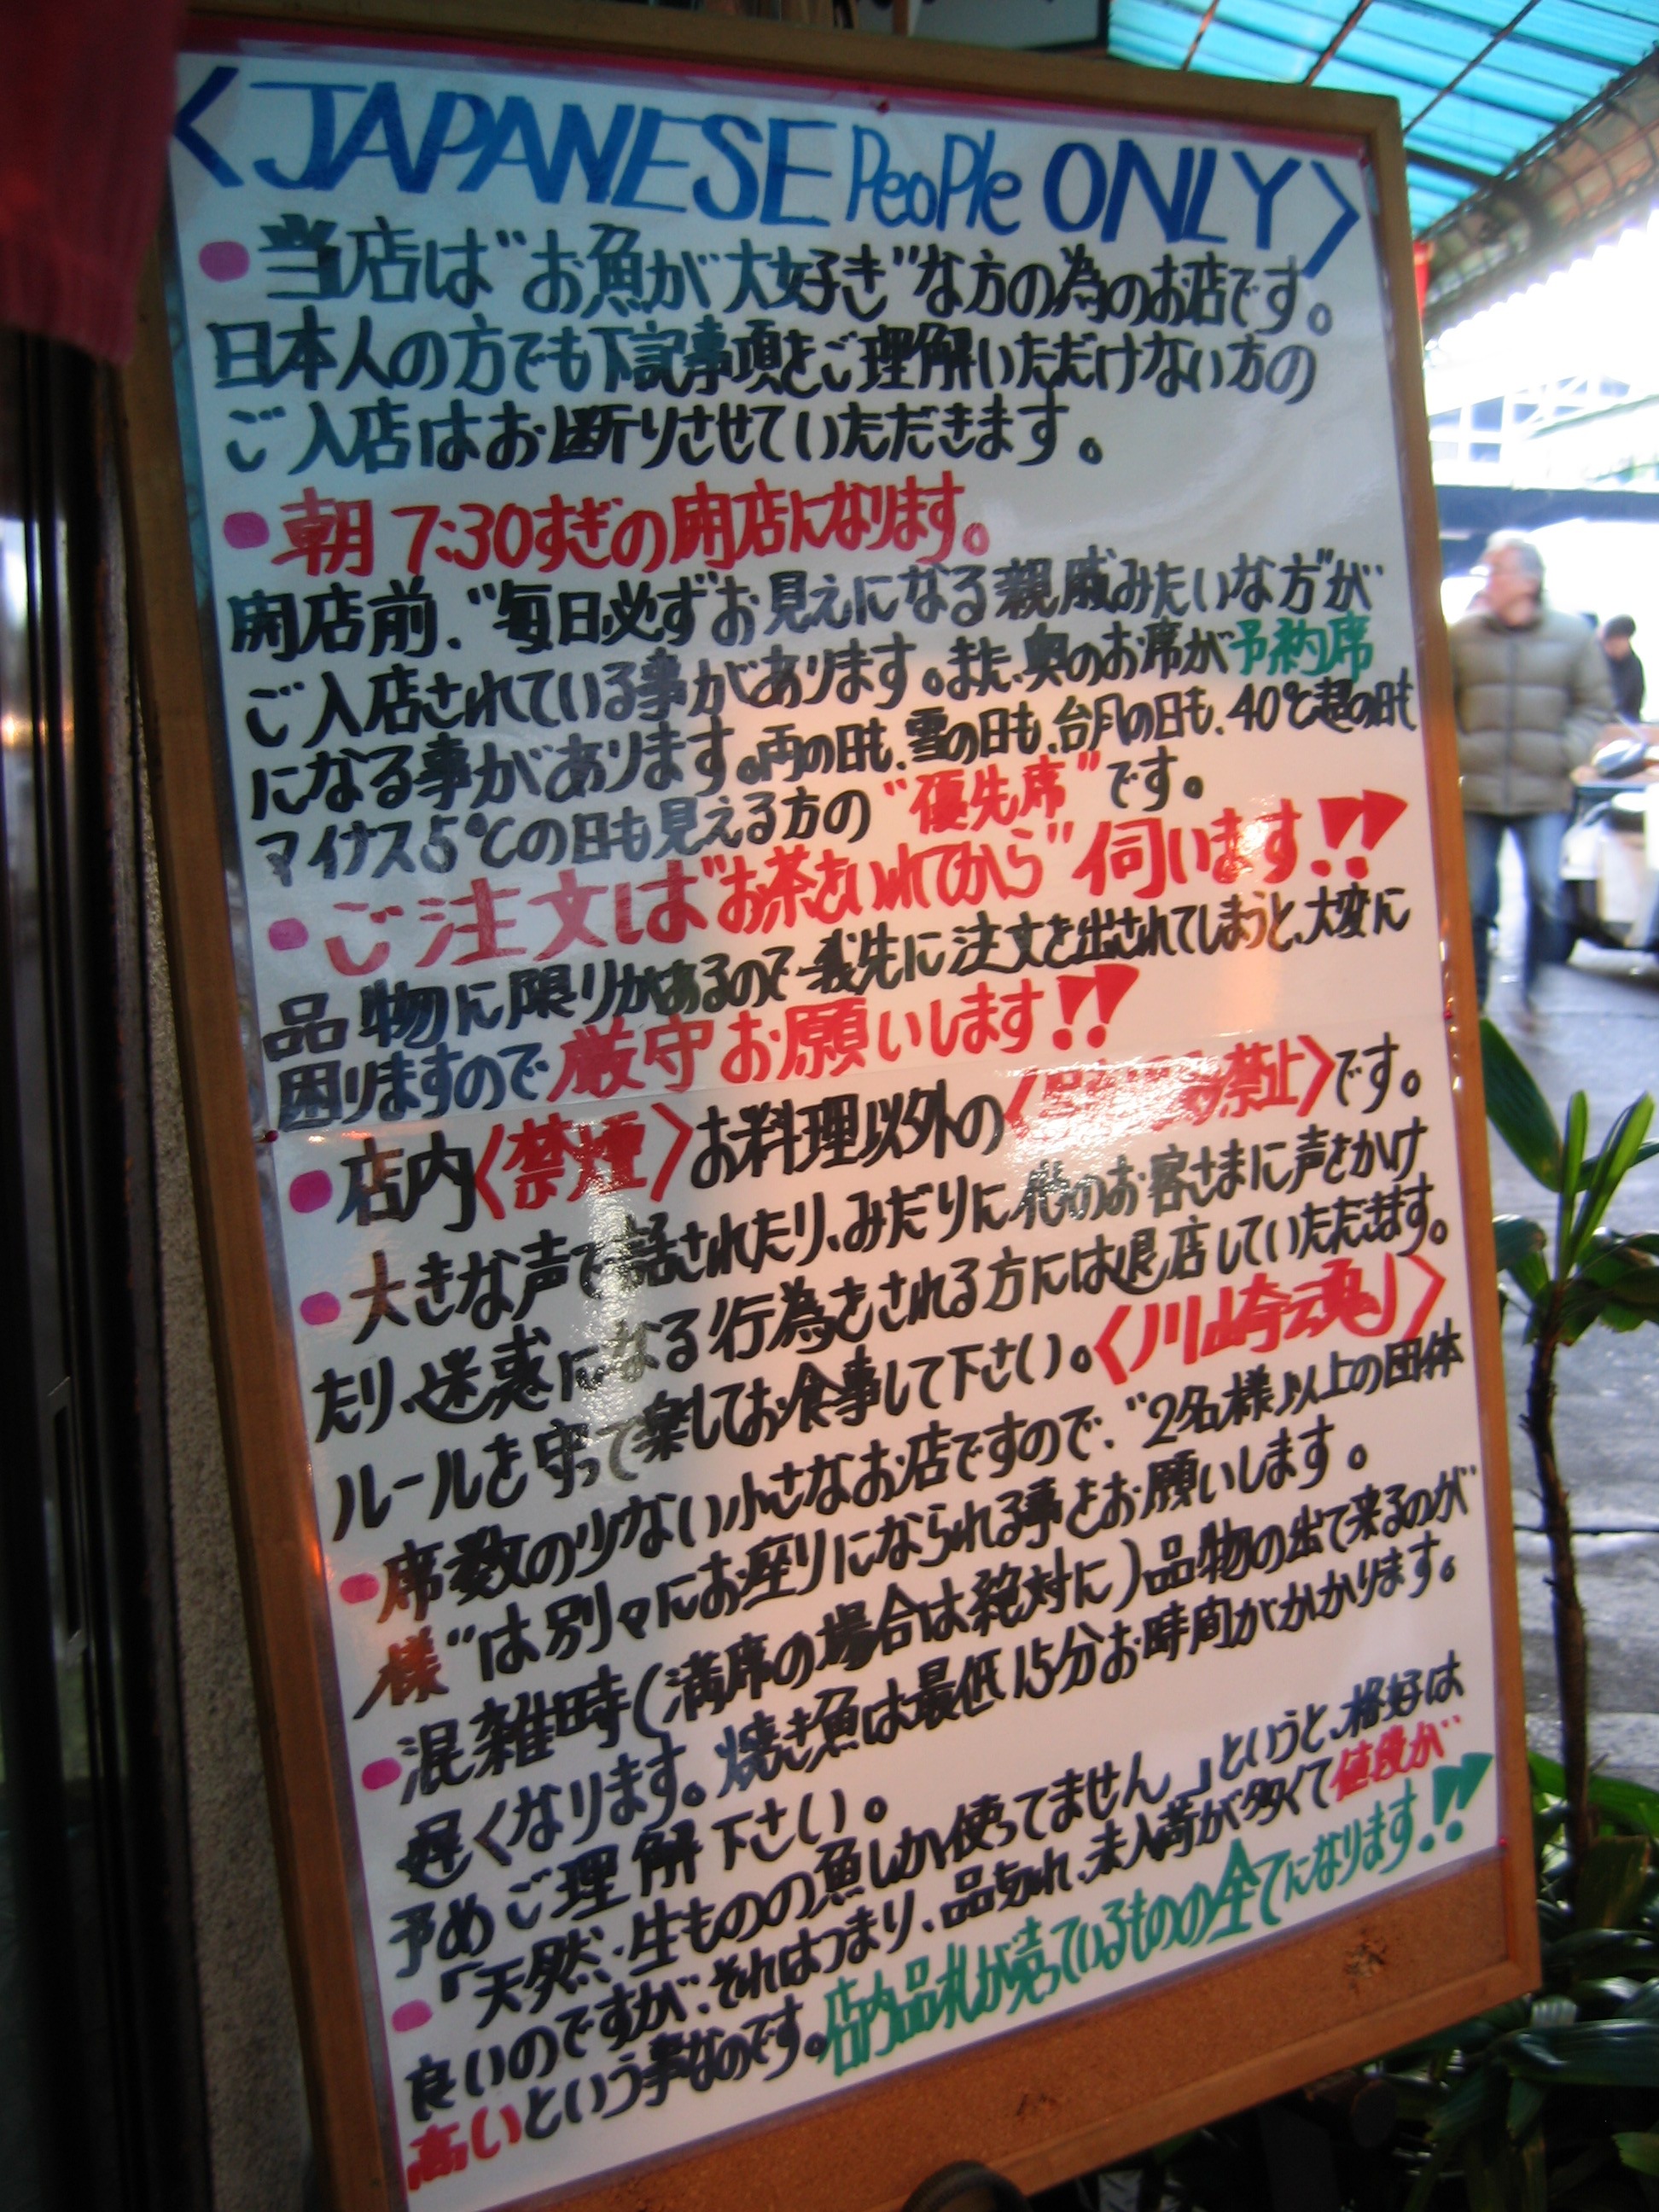 <JAPANESE PeoPle ONLY>
●当店は"お魚が大好き"な方の為のお店です。
日本人の方でも下記事項をご理解いただけない方の
ご入店はお断りさせていただきます。
●朝7:30すぎの開店になります。
開店前、"毎日必ずお見えになる親戚みたいな方"が
ご入店されている事があります。また、奥のお席が予約席
になる事があります。雨の日も、雪の日も、台月の日も、40℃超の日も
マイナス5℃の日も見える方の"優先席"です。
●ご注文は"お茶をいれてから"伺います!!
品物に限りがあるので我先に注文を出されてしまうと、大変に
困りますので厳守お願いします!!
●店内<禁煙>お料理以外の<禁止>です。
●大きな声で話されたり、みだりに他のお客さまに声をかけ
たり、迷惑になる行為をされる方には退店していただきます。
ルールを守って楽してお食事して下さい。<川崎魂>
●席数の少ない小さなお店ですので、"2名様以上の団体
様"は別々にお座りになられる事をお願いします。
●混雑時(満席の場合は絶対に)品物の出て来るのが
遅くなります。焼き魚は最低15分お時間がかかります。
予めご理解下さい。
●「天然、生ものの魚しか使ってません。」というと、格好は
良いのですが、それはつまり、品切れ、未入荷が多くて値段が
高いという事なのです。店内品札が売っているものの全てになります!!